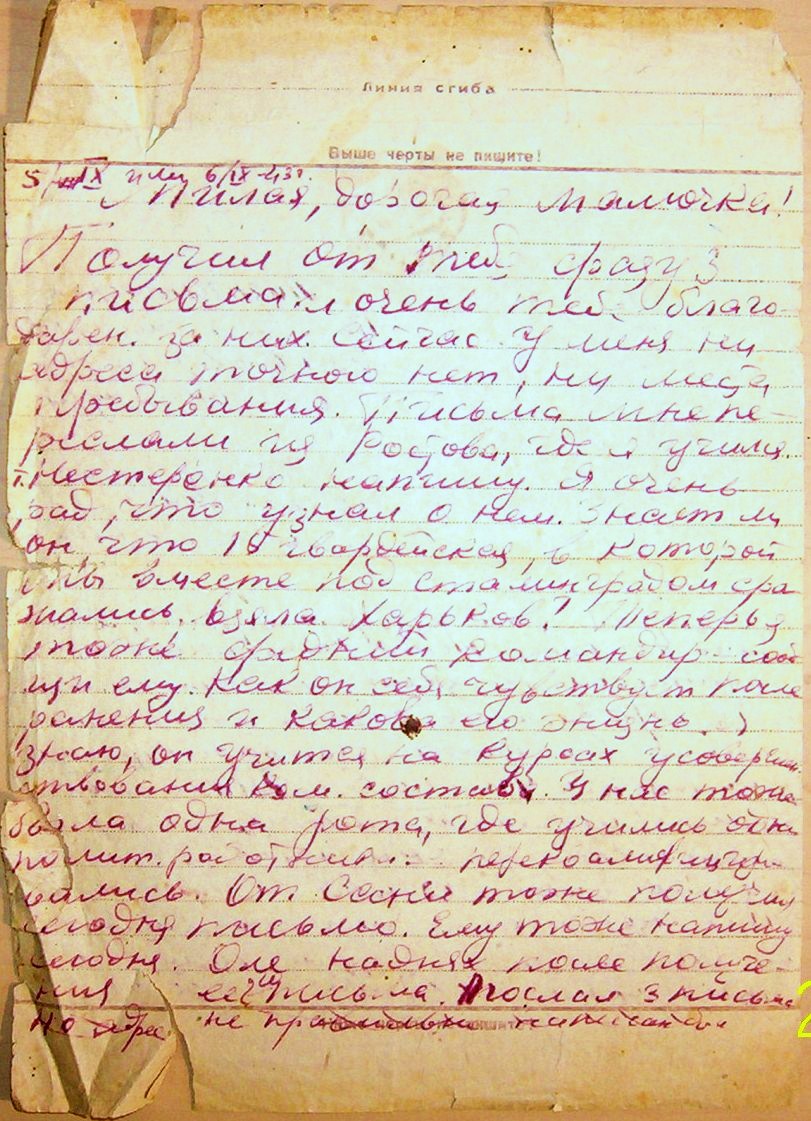 Линия сгиба
Выше черты не пишите!
5/IX или 6/IX-43г.
Милая, дорогая мамочка!
Получил от тебя сразу 3
письма и очень тебе благо-
дарен за них. Сейчас у меня ни
адреса точного нет, ни места
пребывания. Письма мне пе-
реслали из Ростова, где я учился.
Т. Нестеренко напишу. Я очень
рад, что узнал о нем. Знает ли
он, что 15 гвардейская, в которой
мы вместе под сталинградом сра
жались, взяла Харьков? Теперь я
тоже средний командир сооб
щи ему. Как он себя чувствует после
ранения и какова его жизнь. Я
знаю, он учится на курсах усовершен
ствования ком. состава. У нас тоже
была одна рота, где учились одни
полит.работники. переквалифициро
вались. От Сени тоже получил
сегодня письмо. Ему тоже напишу
сегодня. Оле на днях после получе-
ния её письма. Послал 3 письма
но адрес не правильно написан был